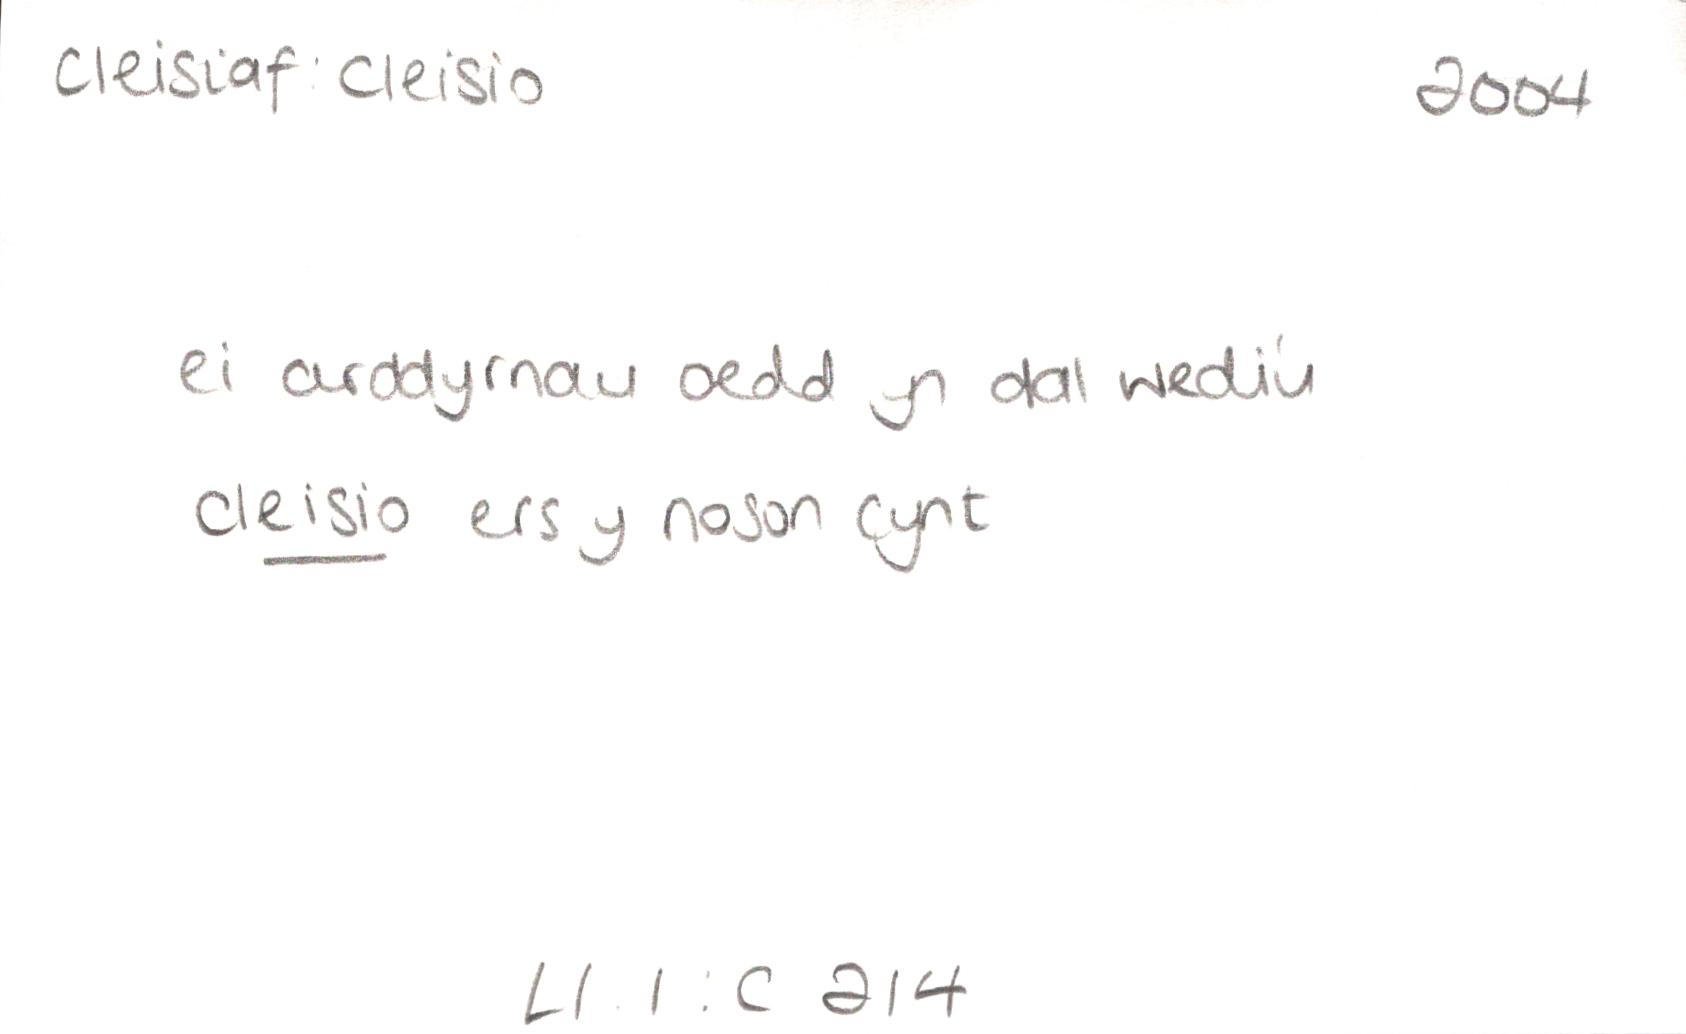 cleisiaf: cleisio 2004
ei arddyrnau oedd yn dal wedi'u
cleisio ers y noson cynt
Ll. 1 : C 214